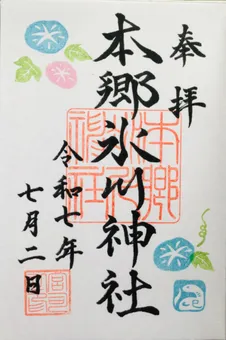 奉拝
本郷氷川神社
令和七年
七月二日
本郷氷川神社
巳